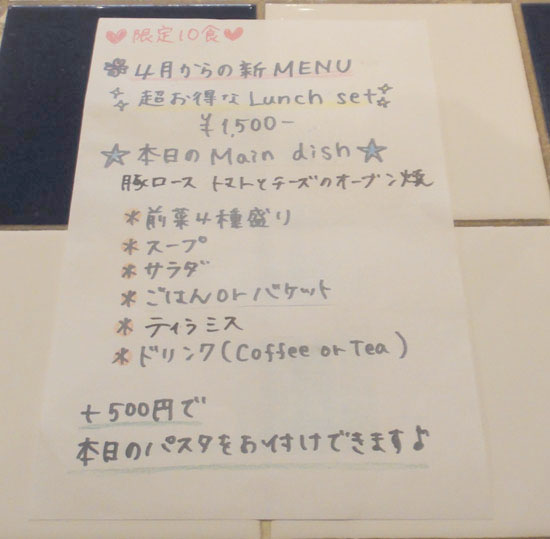 ♥限定10食♥
4月からの新MENU
超お得なLunch set
¥1,500-
★本日のMain dish★
豚ロース トマトとチーズのオーブン焼
*前菜4種盛り
*スープ
*サラダ
*ごはんorバケット
*ティラミス
*ドリンク(Coffee or Tea)
+500円で
本日のパスタをお付けできます♪